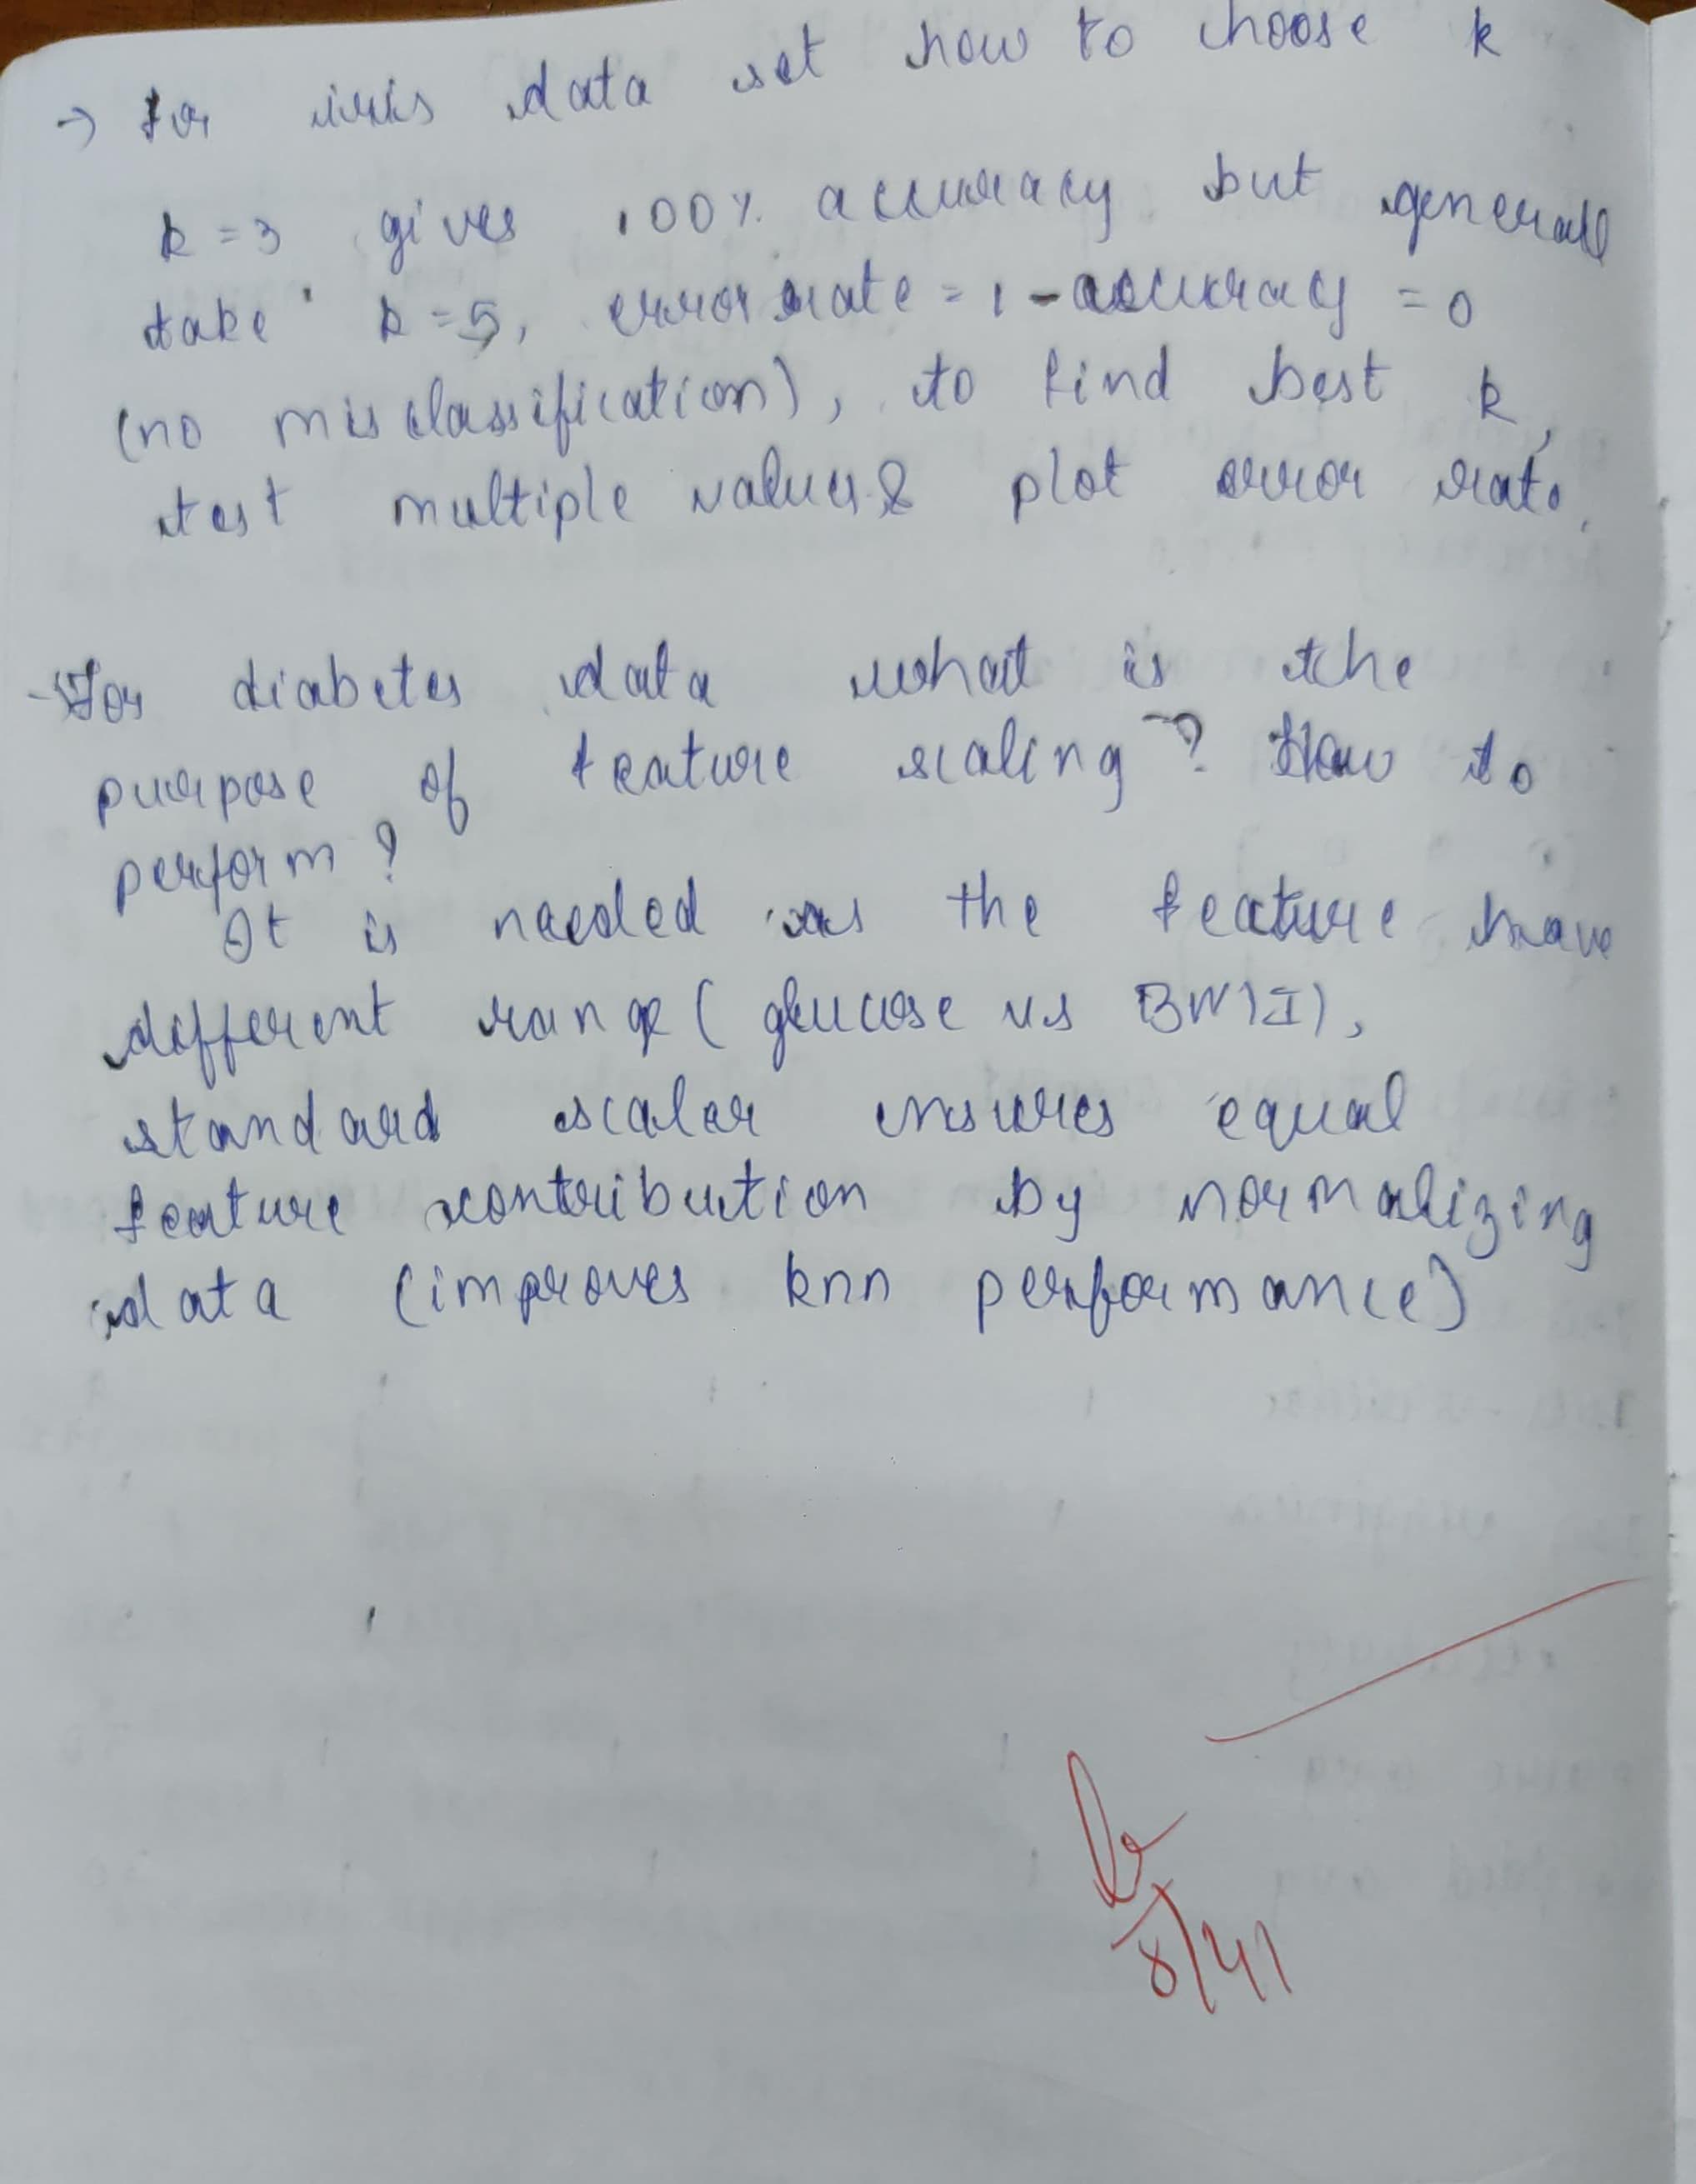 → for iris data set how to choose k
k = 3 gives 100% accuracy but generall
take k = 5, error rate = 1 - accuracy = 0
(no misclassification), to find best k,
test multiple values & plot error rate.
→ For diabetes data what is the
purpose of feature scaling? How to
perform?
It is needed as the feature have
different range ( glucose vs BMI),
standard scaler ensures equal
feature contribution by normalizing
data (improves knn performance)
8/4/